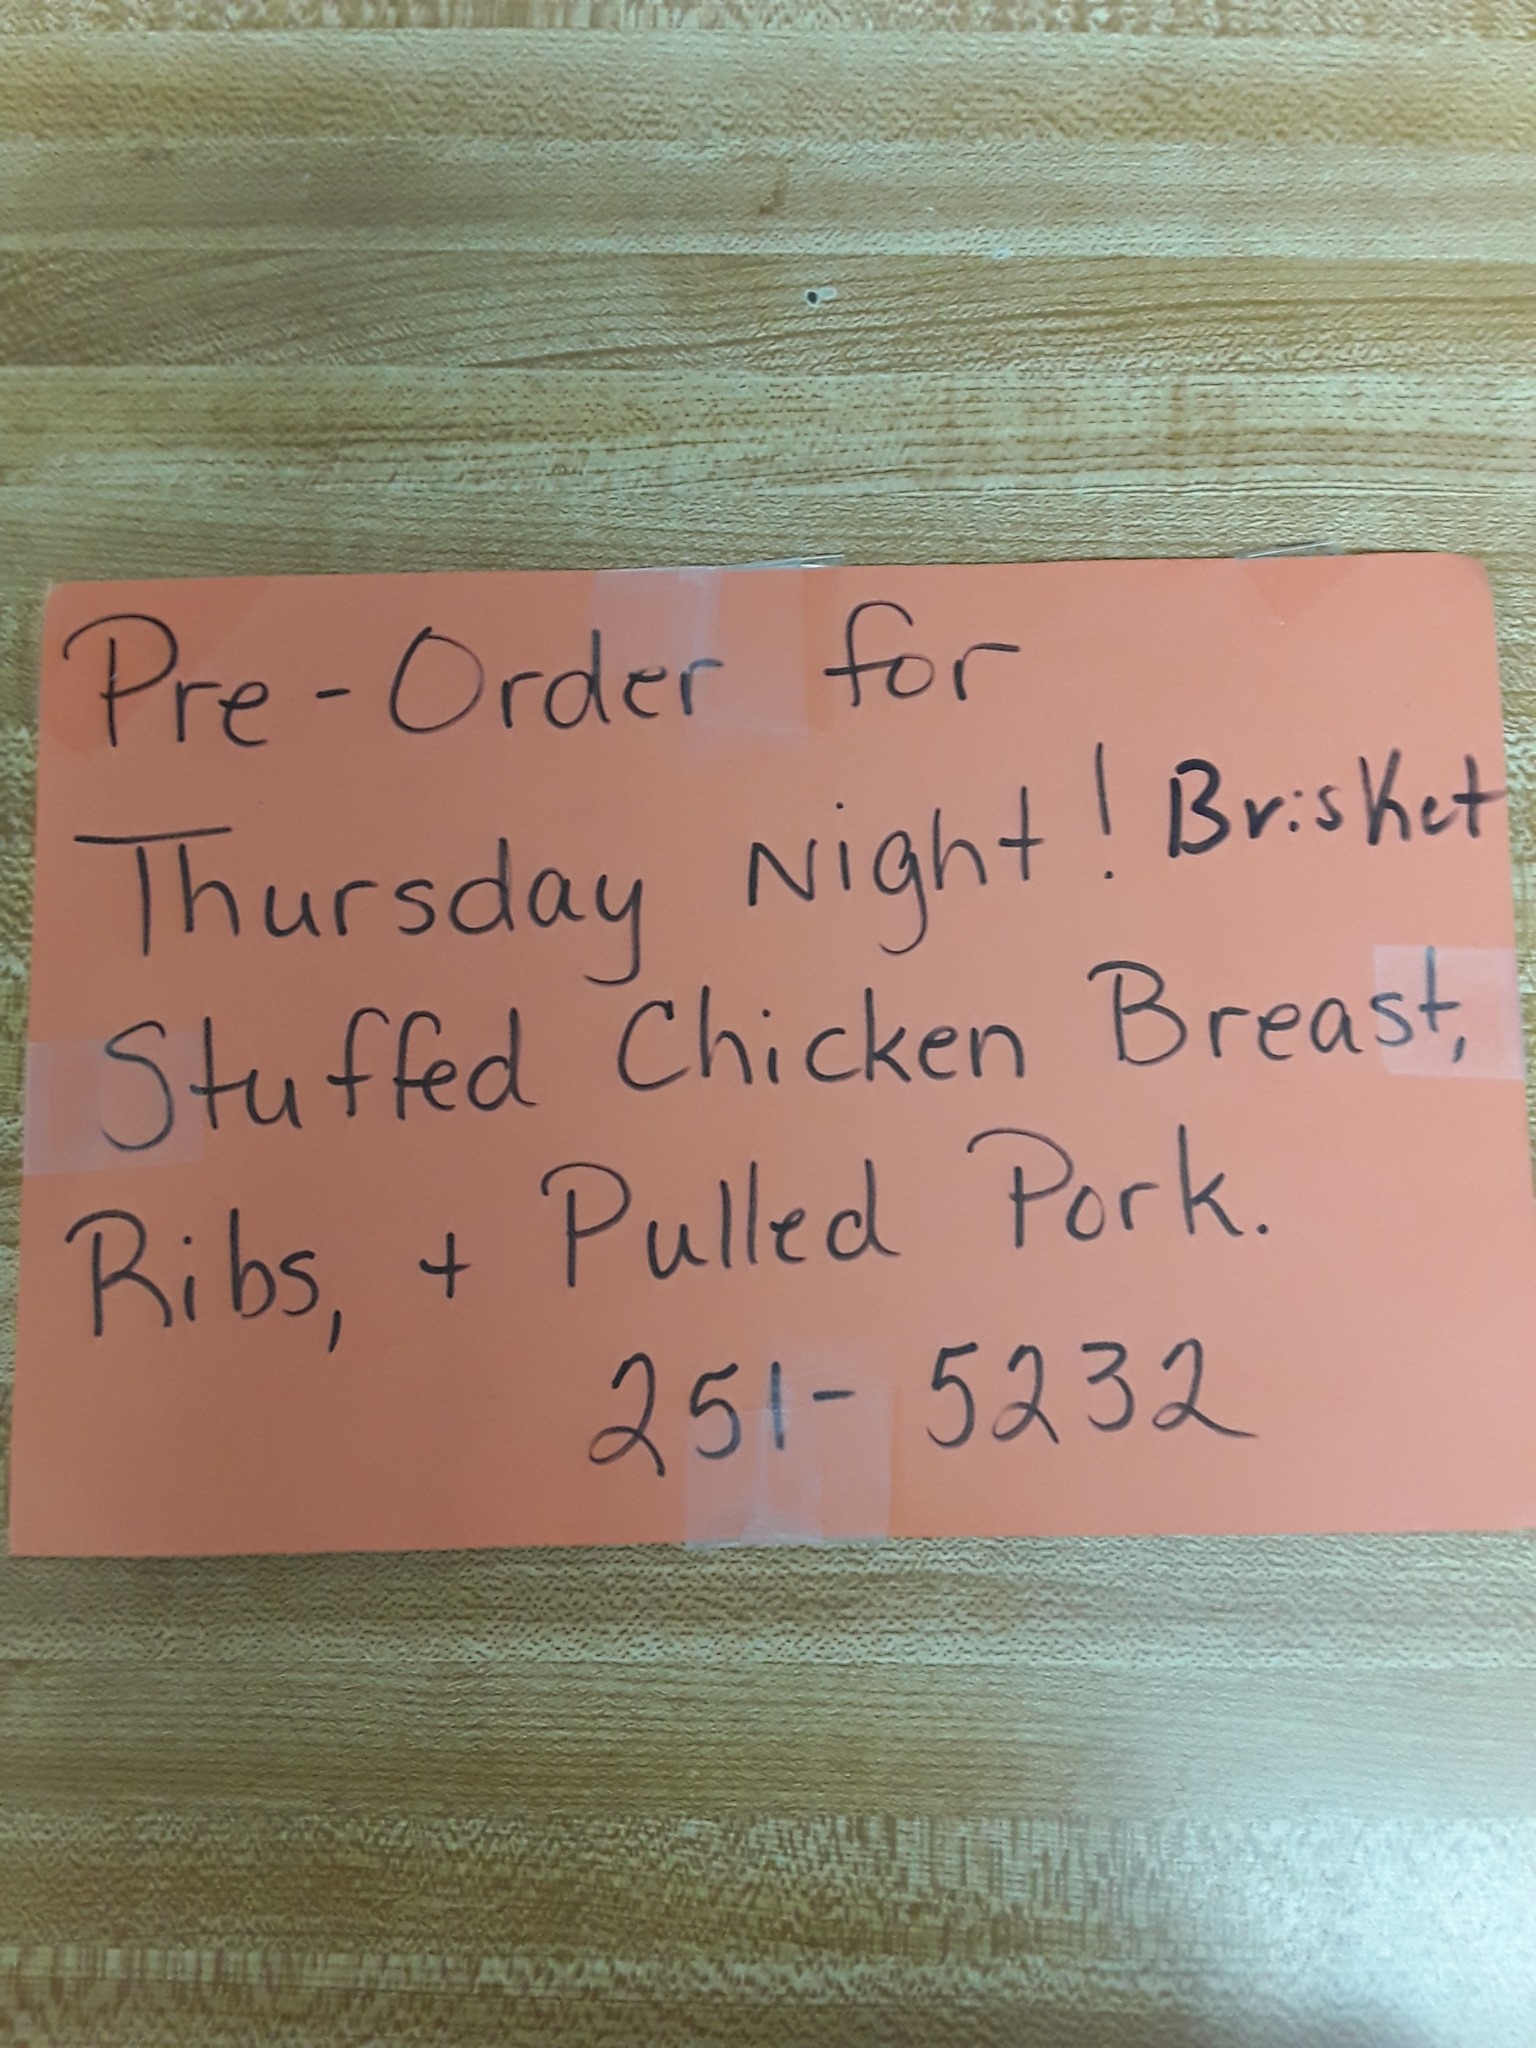 Pre-Order for
Thursday Night! Brisket
Stuffed Chicken Breast,
Ribs, + Pulled Pork.
251-5232